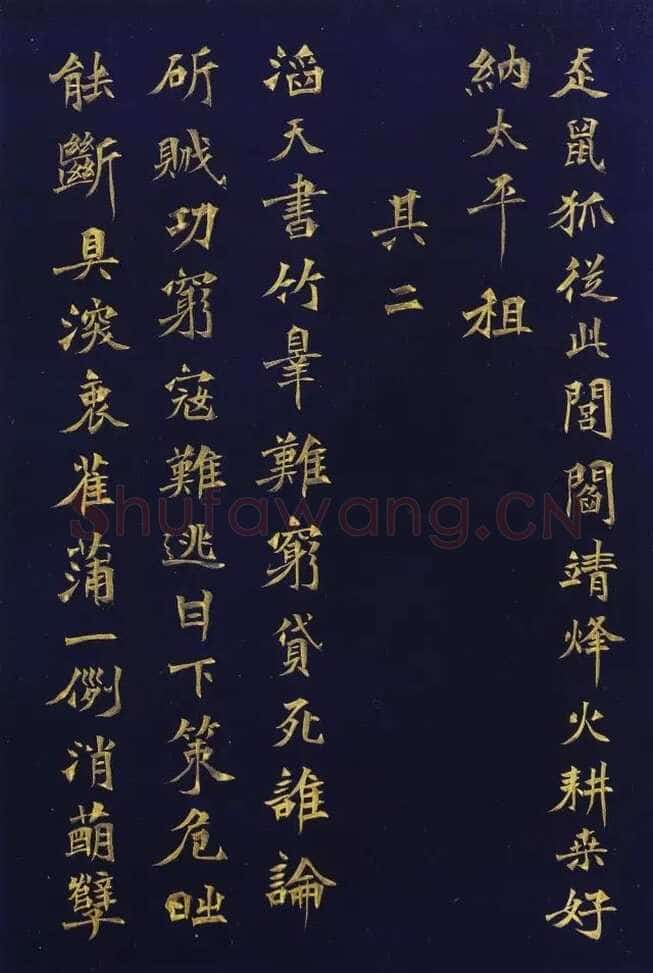 走鼠狐從此閭閻靖烽火耕桒好
納太平租
其二
滔天書竹辠難窮貸死誰論
斫賊功窮寇難逃甘下策危昢
能斷具深衷萑蒲一例消萌孽
Shufawang.CN